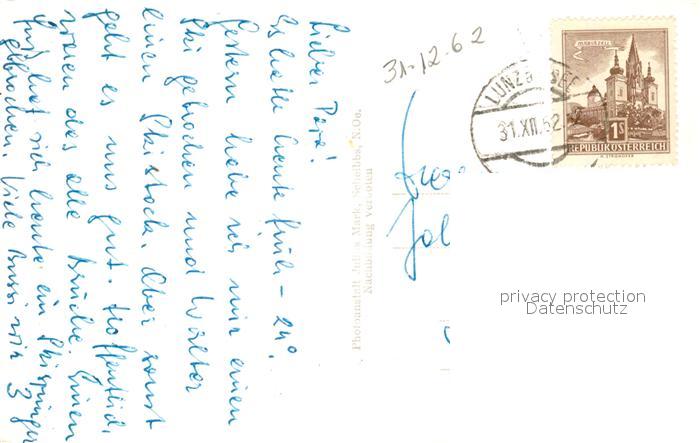 Lieber Papa!
Es hatte heute früh - 24°.
Gestern habe ich mir einen
Ski gebrochen und Walter
einen Skistock. Aber sonst
geht es uns gut. Hoffentlich
waren das alle Brüche. Einen
Fuß hat sich heute ein Skispringer
gebrochen. Viele Bussi von
Photoanstalt Julius Mark, Scheibbs, N.Oe.
Nachahmung verboten
31-12-62
LUNZ a. SEE
31.XII.62
MARIAZELL
1S
REPUBLIK ÖSTERREICH
privacy protection
Datenschutz